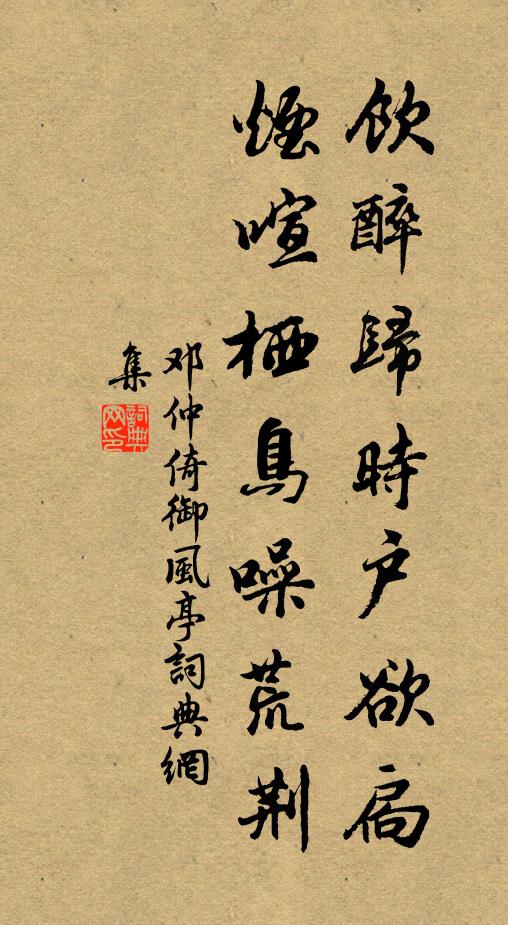 飲醉歸時户欲扃
煙喧栖鳥噪荒荆
邓仲倚御風亭詞典網
集
詞典
网印